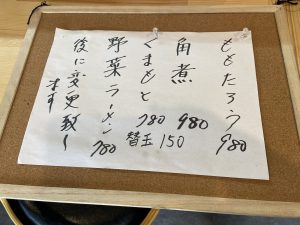 ももたろう 980
角煮 980
くまもと 780
替玉 150
野菜ラーメン 780
後に変更致し
ます